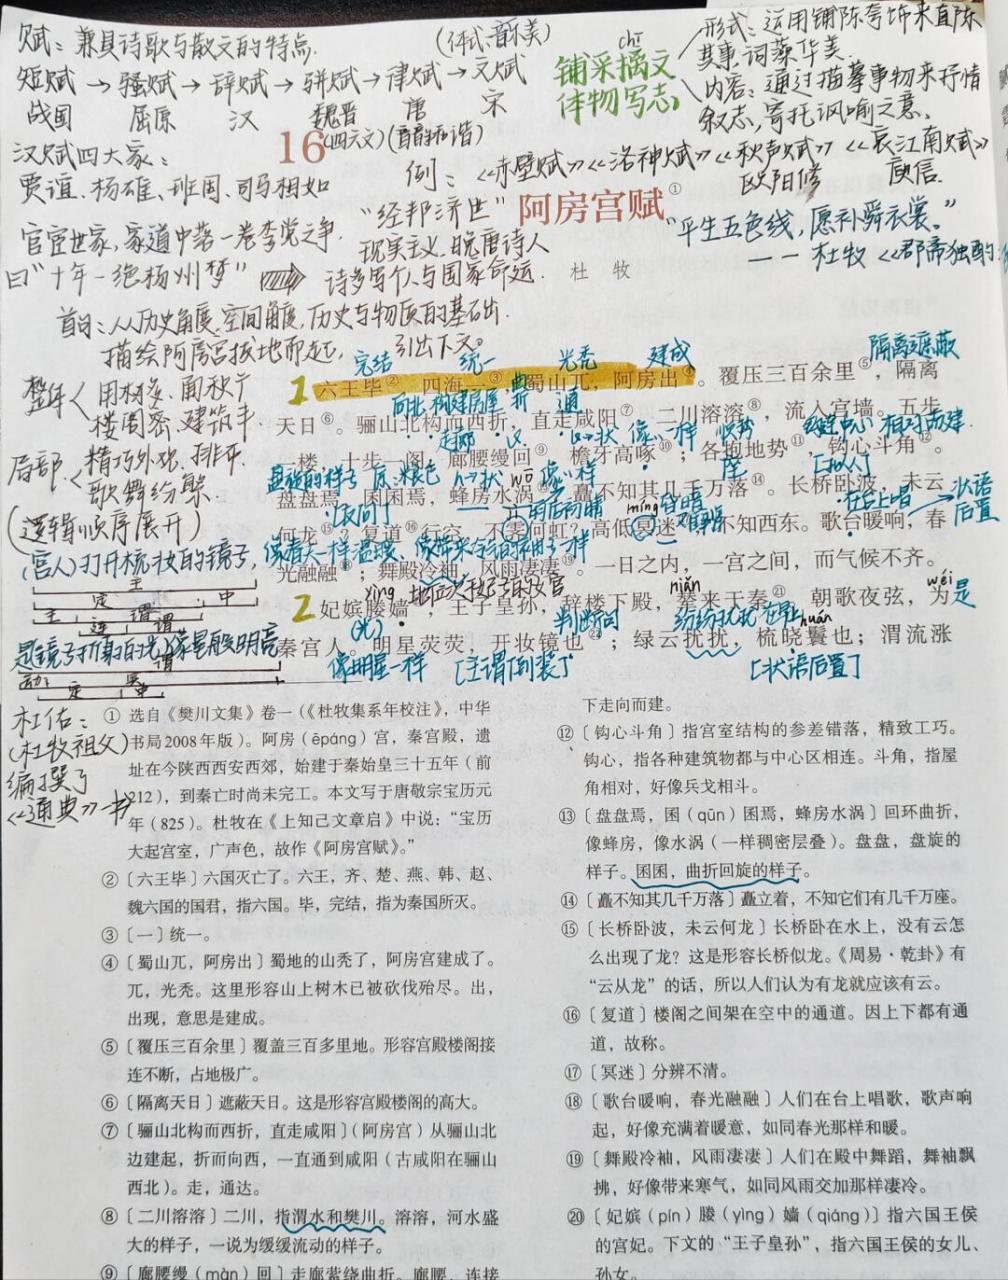 赋：兼具诗歌与散文的特点.
(体式、音乐美)
短赋→骚赋→辞赋→骈赋→律赋→文赋
战国 屈原 汉 魏晋 唐 宋
(四六文)(音韵和谐)
chī
铺采摛文
体物写志
形式：运用铺陈夸饰来直陈
其事.词藻华美.
内容：通过描摹事物来抒情
叙志,寄托讽喻之意.
汉赋四大家：
贾谊、杨雄、班固、司马相如
例：《赤壁赋》《洛神赋》《秋声赋》《哀江南赋》
欧阳修 庾信
16
阿房宫赋①
杜 牧
官宦世家,家道中落—卷李党之争.
曰“十年一绝杨州梦”
“经邦济世”
现实主义.晚唐诗人
诗多写个人与国家命运.
“平生五色线,愿补舜衣裳.”
——杜牧《郡斋独酌》
首句：从历史角度、空间角度,历史与物质的基础出.
描绘阿房宫拔地而起, 引出下文.
整体
用材多、面积广
楼阁密、建筑丰
局部.
精巧外观、排评
歌舞纷繁
(逻辑顺序展开)
完结 统一 光秃 建成 隔离遮蔽
1 六王毕②，四海一③，蜀山兀，阿房出④。覆压三百余里⑤，隔离
向北 构建房屋 折 通
天日⑥。骊山北构而西折，直走咸阳⑦。二川溶溶⑧，流入宫墙。五步
一楼，十步一阁；廊腰缦回⑨，檐牙高啄⑩；各抱地势⑪，钩心斗角⑫。
盘盘焉，囷囷焉，蜂房水涡⑬，矗不知其几千万落⑭。长桥卧波，未云
何龙⑮？复道⑯行空，不霁何虹？高低冥迷⑰，不知西东。歌台暖响，春
光融融⑱；舞殿冷袖，风雨凄凄⑲。一日之内，一宫之间，而气候不齐。
在台上唱→状语后置
(宫人)打开梳妆的镜子,
2 妃嫔媵嫱⑳，王子皇孙，辞楼下殿，辇来于秦㉑，朝歌夜弦，为
niǎn wéi 是
秦宫人。明星荧荧，开妆镜也㉒；绿云扰扰，梳晓鬟也；渭流涨
(光) 判断句 纷纷扰扰 huán
像明星一样 [主谓倒装] [状语后置]
杜佑：
(杜牧祖父)
编撰了
《通典》一书
① 选自《樊川文集》卷一（《杜牧集系年校注》，中华
书局2008年版）。阿房（ēpáng）宫，秦宫殿，遗
址在今陕西西安西郊，始建于秦始皇三十五年（前
212），到秦亡时尚未完工。本文写于唐敬宗宝历元
年（825）。杜牧在《上知己文章启》中说：“宝历
大起宫室，广声色，故作《阿房宫赋》。”
②〔六王毕〕六国灭亡了。六王，齐、楚、燕、韩、赵、
魏六国的国君，指六国。毕，完结，指为秦国所灭。
③〔一〕统一。
④〔蜀山兀，阿房出〕蜀地的山秃了，阿房宫建成了。
兀，光秃。这里形容山上树木已被砍伐殆尽。出，
出现，意思是建成。
⑤〔覆压三百余里〕覆盖三百多里地。形容宫殿楼阁接
连不断，占地极广。
⑥〔隔离天日〕遮蔽天日。这是形容宫殿楼阁的高大。
⑦〔骊山北构而西折，直走咸阳〕（阿房宫）从骊山北
边建起，折而向西，一直通到咸阳（古咸阳在骊山
西北）。走，通达。
⑧〔二川溶溶〕二川，指渭水和樊川。溶溶，河水盛
大的样子，一说为缓缓流动的样子。
⑨〔廊腰缦（màn）回〕走廊萦绕曲折。廊腰，连接
下走向而建。
⑫〔钩心斗角〕指宫室结构的参差错落，精致工巧。
钩心，指各种建筑物都与中心区相连。斗角，指屋
角相对，好像兵戈相斗。
⑬〔盘盘焉，囷（qūn）囷焉，蜂房水涡〕回环曲折，
像蜂房，像水涡（一样稠密层叠）。盘盘，盘旋的
样子。囷囷，曲折回旋的样子。
⑭〔矗不知其几千万落〕矗立着，不知它们有几千万座。
⑮〔长桥卧波，未云何龙〕长桥卧在水上，没有云怎
么出现了龙？这是形容长桥似龙。《周易·乾卦》有
“云从龙”的话，所以人们认为有龙就应该有云。
⑯〔复道〕楼阁之间架在空中的通道。因上下都有通
道，故称。
⑰〔冥迷〕分辨不清。
⑱〔歌台暖响，春光融融〕人们在台上唱歌，歌声响
起，好像充满着暖意，如同春光那样和暖。
⑲〔舞殿冷袖，风雨凄凄〕人们在殿中舞蹈，舞袖飘
拂，好像带来寒气，如同风雨交加那样凄冷。
⑳〔妃嫔（pín）媵（yìng）嫱（qiáng）〕指六国王侯
的宫妃。下文的“王子皇孙”，指六国王侯的女儿、
孙女。